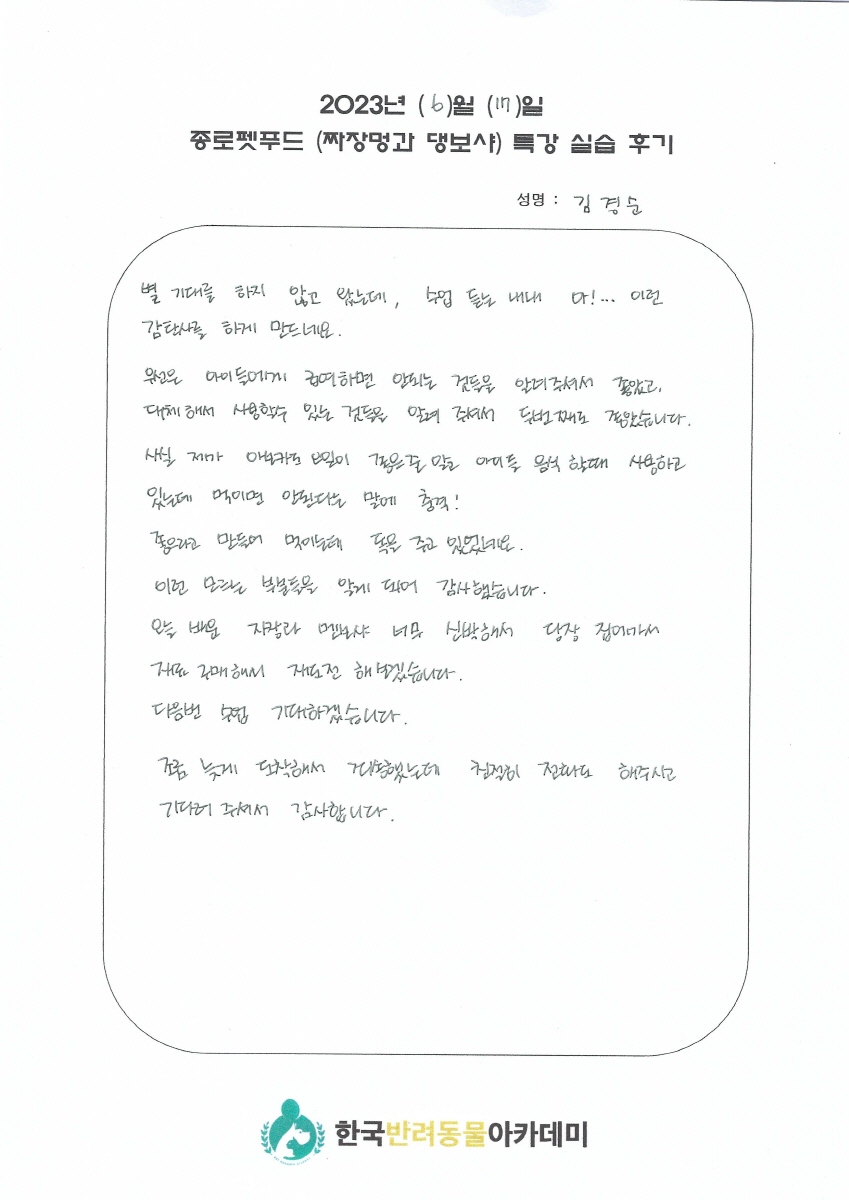 2023년 (6)월 (17)일
종로펫푸드 (짜장멍과 댕보샤) 특강 실습 후기
성명 : 김경순
별 기대를 하지 않고 왔는데, 수업 듣는 내내 와!... 이런
감탄사를 하게 만드네요.
우선은 아이들에게 급여하면 안되는 것들을 알려주셔서 좋았고,
대체해서 사용할수 있는 것들을 알려 주셔서 두번째로 좋았습니다.
사실 제가 아보카도 오일이 좋은줄 알고 아이들 음식 할때 사용하고
있는데 먹이면 안된다는 말에 충격!
좋으라고 만들어 먹이는데 독을 주고 있었네요.
이런 모르는 부분들을 알게 되어 감사했습니다.
오늘 배운 자장과 멘보샤 너무 신박해서 당장 집에가서
재료 구매해서 재도전 해보겠습니다.
다음번 수업 기대하겠습니다.
조금 늦게 도착해서 죄송했는데 친절히 전화도 해주시고
기다려 주셔서 감사합니다.
한국반려동물아카데미